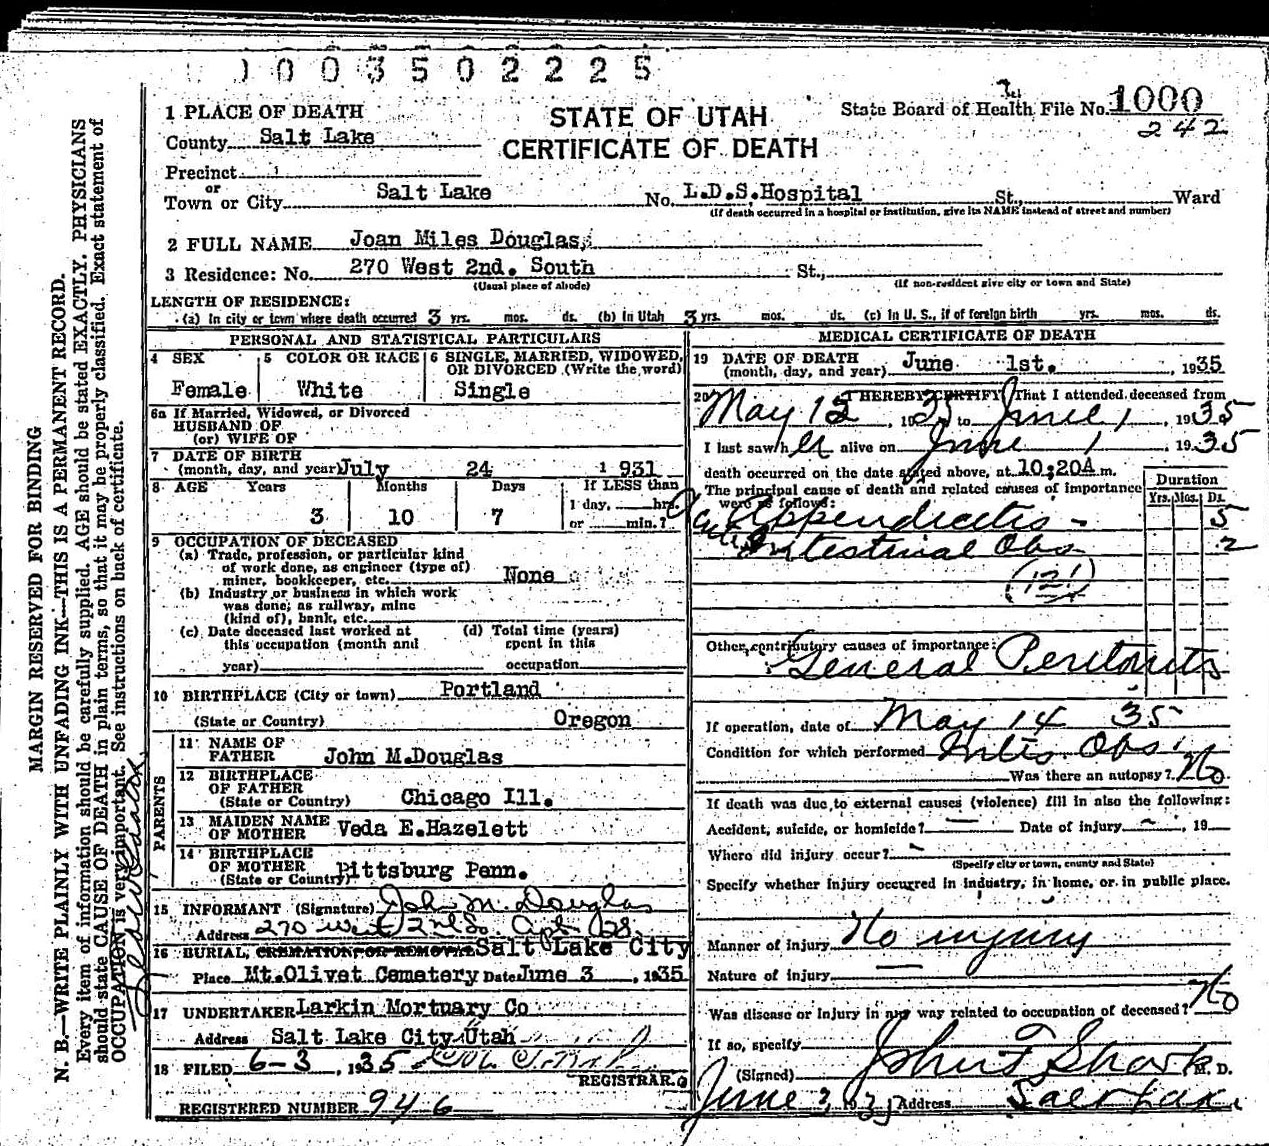 0 0 0 3 5 0 2 2 2 5
STATE OF UTAH
CERTIFICATE OF DEATH
State Board of Health File No. 1000
242
1 PLACE OF DEATH
County Salt Lake
Precinct
or
Town or City Salt Lake No. L.D.S.Hospital St., Ward
(If death occurred in a hospital or institution, give its NAME instead of street and number)
2 FULL NAME Joan Miles Douglas,
3 Residence: No. 270 West 2nd. South St.,
(Usual place of abode) (If non-resident give city or town and State)
LENGTH OF RESIDENCE:
(a) In city or town where death occurred 3 yrs. mos. ds. (b) in Utah 3 yrs. mos. ds. (c) In U. S., if of foreign birth yrs. mos. ds.
PERSONAL AND STATISTICAL PARTICULARS
4 SEX 5 COLOR OR RACE 6 SINGLE, MARRIED, WIDOWED,
OR DIVORCED (Write the word)
Female White Single
6a If Married, Widowed, or Divorced
HUSBAND OF
(or) WIFE OF
7 DATE OF BIRTH
(month, day, and year) July 24 1931
8 AGE Years Months Days If LESS than
1 day, hrs.
3 10 7 or min.?
9 OCCUPATION OF DECEASED
(a) Trade, profession, or particular kind
of work done, as engineer (type of)
miner, bookkeeper, etc. None
(b) Industry or business in which work
was done; as railway, mine
(kind of), bank, etc.
(c) Date deceased last worked at (d) Total time (years)
this occupation (month and spent in this
year) occupation
10 BIRTHPLACE (City or town) Portland
(State or Country) Oregon
PARENTS
11 NAME OF
FATHER John M.Douglas
12 BIRTHPLACE
OF FATHER
(State or Country) Chicago Ill.
13 MAIDEN NAME
OF MOTHER Veda E.Hazelett
14 BIRTHPLACE
OF MOTHER
(State or Country) Pittsburg Penn.
15 INFORMANT (Signature) John M. Douglas
Address 270 West 2nd So. Apt 128.
16 BURIAL, CREMATION OR REMOVAL Salt Lake City
Place Mt.Olivet Cemetery Date June 3, 1935
17 UNDERTAKER Larkin Mortuary Co
Address Salt Lake City Utah
18 FILED 6-3, 1935
REGISTRAR.
REGISTERED NUMBER 946
MEDICAL CERTIFICATE OF DEATH
19 DATE OF DEATH
(month, day, and year) June 1st., 1935
20 I HEREBY CERTIFY, That I attended deceased from
May 12, 1935 to June 1, 1935
I last saw her alive on June 1 1935
death occurred on the date stated above, at 10:20A m.
The principal cause of death and related causes of importance
were as follows:
Duration
Yrs. Mos. Ds.
Acute Appendicitis - 5
Intestinal Obs 2
(121)
Other contributory causes of importance:
General Peritonitis
If operation, date of May 14 35
Condition for which performed Intes. Obs.
Was there an autopsy? No
If death was due to external causes (violence) fill in also the following:
Accident, suicide, or homicide? — Date of injury —, 19
Where did injury occur? -
(Specify city or town, county and State)
Specify whether injury occurred in industry, in home, or in public place.
Manner of injury No injury
Nature of injury —
Was disease or injury in any way related to occupation of deceased? No
If so, specify
(Signed) John F Sharp M. D.
June 3, 1935 Address Salt Lake
MARGIN RESERVED FOR BINDING
N. B.—WRITE PLAINLY WITH UNFADING INK—THIS IS A PERMANENT RECORD.
Every item of information should be carefully supplied. AGE should be stated EXACTLY. PHYSICIANS
should state CAUSE OF DEATH in plain terms, so that it may be properly classified. Exact statement of
OCCUPATION is very important. See instructions on back of certificate.